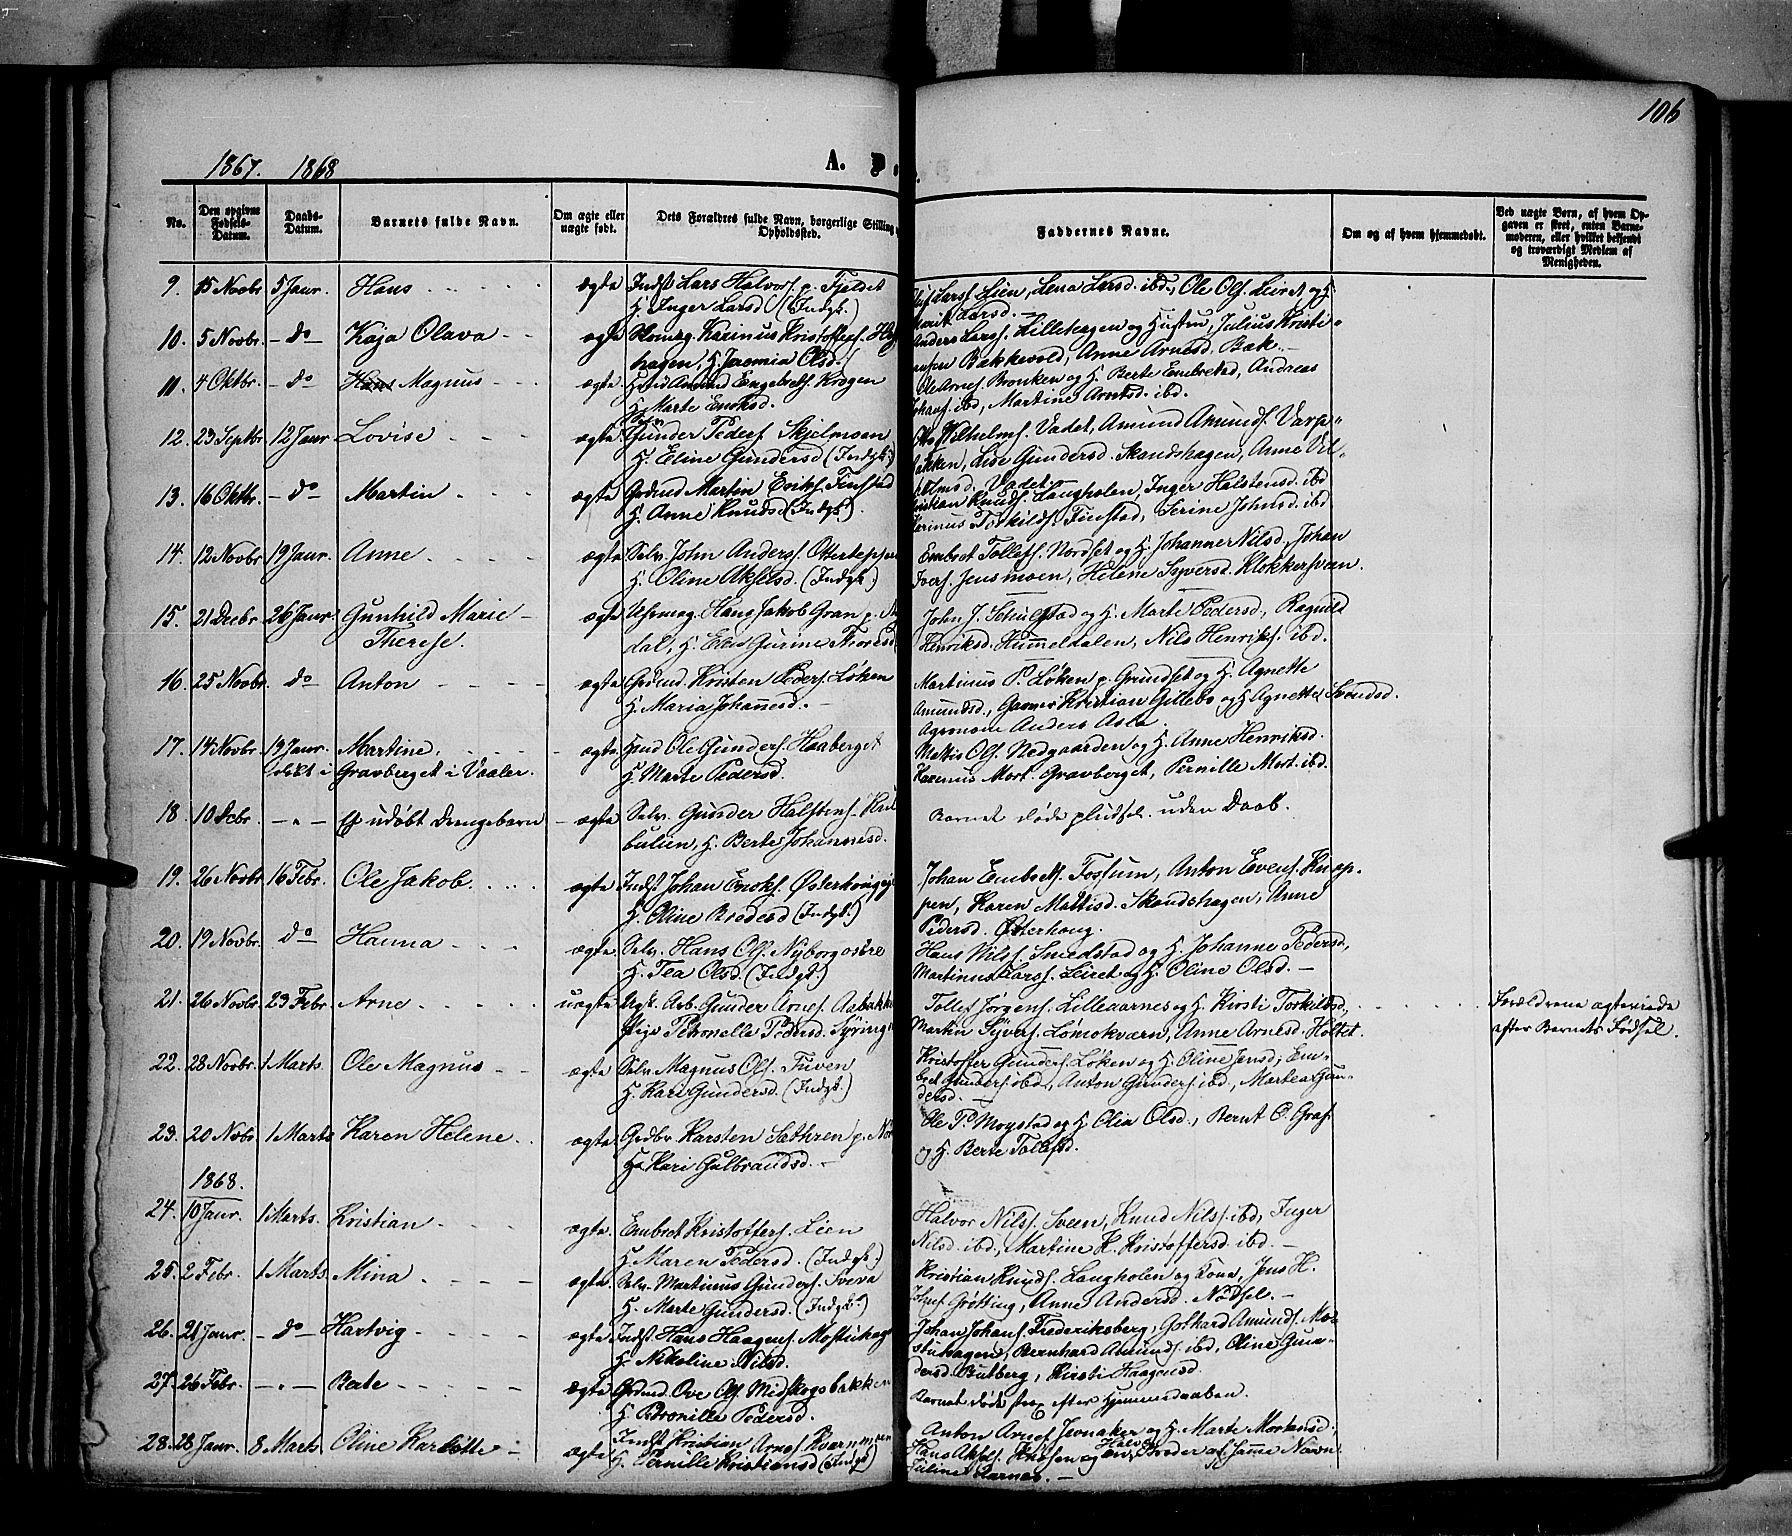 106
1867. 1868
A.
No.
Den opgivne Fødsels-Datum.
Daabs-Datum.
Barnets fulde Navn.
Om ægte eller uægte født.
Dets Forældres fulde Navn, borgerlige Stilling
Opholdssted.
Faddernes Navne.
Om og af hvem hjemmedøbt.
Ved uægte Børn, af hvem Opgaven er skeet, enten Barnemoderen, eller hvilket bekjendt og troværdigt Medlem af Menigheden.
9. 15 Novbr 5 Janr. Hans ægte Indst Lars Halvors. p. Fjeldet
H. Inger Larsd (Indgk.)
Larss. Lien, Lena Larsd. ibd., Ole Ols. Leiret og H
Marit Larsd.
10. 5 Novbr. do Kaja Olava ægte Karinus Kristoffers.
hagen, H. Olsd.
Anders Larss. Lillebergen og Hustru, Julius Kristi-
ansen Bakkevold, Anne Arnesd. Bak.
11. 4 Oktbr. do Hans Magnus ægte Amund Engebrets. Krogen
H. Marte Enoksd.
Ole Arnes. Bronken og H. Berte Embretsd, Andreas
Johans. ibd, Martine Arntsd. ibd.
12. 23 Septbr 12 Janr Lovise ægte Gunder Peders. Skjelmoen
H. Eline Gundersd (Indgk.)
Wilhelms. Vadet, Amund Amunds. Varpe-
bakken, Lise Gundersd. Skandshagen, Anne Vil-
helmsd. Vadet
13. 16 Oktbr. do Martin ægte Grdmd Martin Eriks. Finstad
H. Anne Knudsd (Indgk.).
Kristian Knuds. Langholen, Inger Halstensd. ibd
Karinus Torkilds. Finstad, Serine Johnsd. ibd.
14. 12 Novbr 19 Janr. Anne ægte Selv. John Anders. Ottertepp
H. Oline Akselsd. (Indgk.)
Embret Tollefs. Nordset og H. Johanne Nilsd, Johan
Ivers. Jensmoen, Helene Syversd. Klokkersveen.
15. 21 Decbr 26 Janr Gunhild Marie
Therese.
ægte Hans Jakob Gran p.
dal, H. Gurine Thoresd
John J. Schulstad og H. Marte Pedersd., Ragnild
Henriksd. Hummeldalen, Nils Henriks. ibd.
16. 25 Novbr. do Anton ægte Grdmd. Kristen Peders. Løken
H. Maria Johannesd.
Martinus P. Løken p. Grundset og H. Agnette
Amundsd., Garver Kristian Gillebo og H Agnette Svendsd.
Agronom Anders Asla.
17. 14 Novbr. 19 Janr. Martine. ægte Hmd Ole Gunders. Haaberget
døbt i Gravberget i Vaaler. H. Marte Pedersd.
Mattis Ols. Nedgaarden og H. Anne Henriksd.
Karenus Mort. Gravberget, Pernille Mort. ibd.
18. 10 Debr. Et udøbt Drengebarn ægte Selv. Gunder Halstens.
bulien, H. Berte Johannesd.
Barnet døde pludsel. uden Daab.
19. 26 Novbr 16 Febr. Ole Jakob. ægte Indst Johan Enoks. Østerhoug
H. Oline (Indgk.)
Johan Embrets. Fossum, Anton Evens. Knap-
pen, Karen Mattisd. Skandshagen, Anne
Pedersd. Østerhoug.
20. 19 Novbr. do Hanna ægte Selv. Hans Ols. Nyborg østre
H. Tea Olsd. (Indgk.)
Hans Nils. Smedstad og H. Johanne Pedersd,
Martinus Larss. Leiret og H. Oline Olsd.
21. 26 Novbr. 23 Febr. Arne uægte Arb. Gunder Arnes. Aabakk
Pige Petronelle Pedersd.
Tollef Jørgens. Lilleaarnes og H. Kirsti Torkildsd.,
Martin Syvers. Lømokværn, Anne Arnesd. Holtet.
Forældrene ægteviede
efter Barnets Fødsel.
22. 28 Novbr. 1 Marts. Ole Magnus ægte Selv Magnus Ols. Tuven
H. Kari Gundersd. (Indgk.)
Kristoffer Gunders. Løken og H. Oline Jensd, Em-
bret Gunders ibd, Anton Gunders. ibd., Martea Gun-
dersd.
23. 20 Nobr. 1 Marts Karen Helene ægte Grdbr Karsten Sæthren p.
H. Kari Gulbrandsd.
Ole P. Moystad og H Olia Olsd., Bernt O. Graf
og H. Berte Tollefsd.
1868.
24. 10 Janr. 1 Marts. Kristian ægte. Embret Kristoffers. Lien
H. Maren Pedersd. (Indgk.)
Halvor Nils. Sveen, Knud Nils. ibd, Inger
Nilsd. ibd., Martine K. Kristoffersd. ibd.
25. 2 Febr. 1 Marts Mina ægte Selv. Martinus Gunders. Sveva
H. Marte Gundersd. (Indgk.)
Kristian Knuds. Langholen og Kone, Jens H.
Grøtting, Anne Andersd. Nødsel.
26. 21 Janr do Hartvig ægte Indst. Hans Haagens. Mostuhag
H. Nikoline Nilsd.
Johan Johans. Frederiksberg, Gothard Amunds. Mo-
stuhagen, Bernhard Amunds. ibd, Oline Gun-
dersd. Butberg, Kirsti Haagensd.
27. 26 Febr. Berte ægte Grdmd. Ove Ols. Midskogsbakken
H. Petronille Pedersd.
Barnet døde strax efter Hjemmedaaben.
28. 28 Janr. 8 Marts Oline Karlotte ægte Indst Kristian Arnes. Kværnmoen
H. Pernille Kristiansd (Indgk)
Anton Arnes. Jevnaker og H. Marte Mortensd.
Hans Aksels. og en Broder af samme Navn.